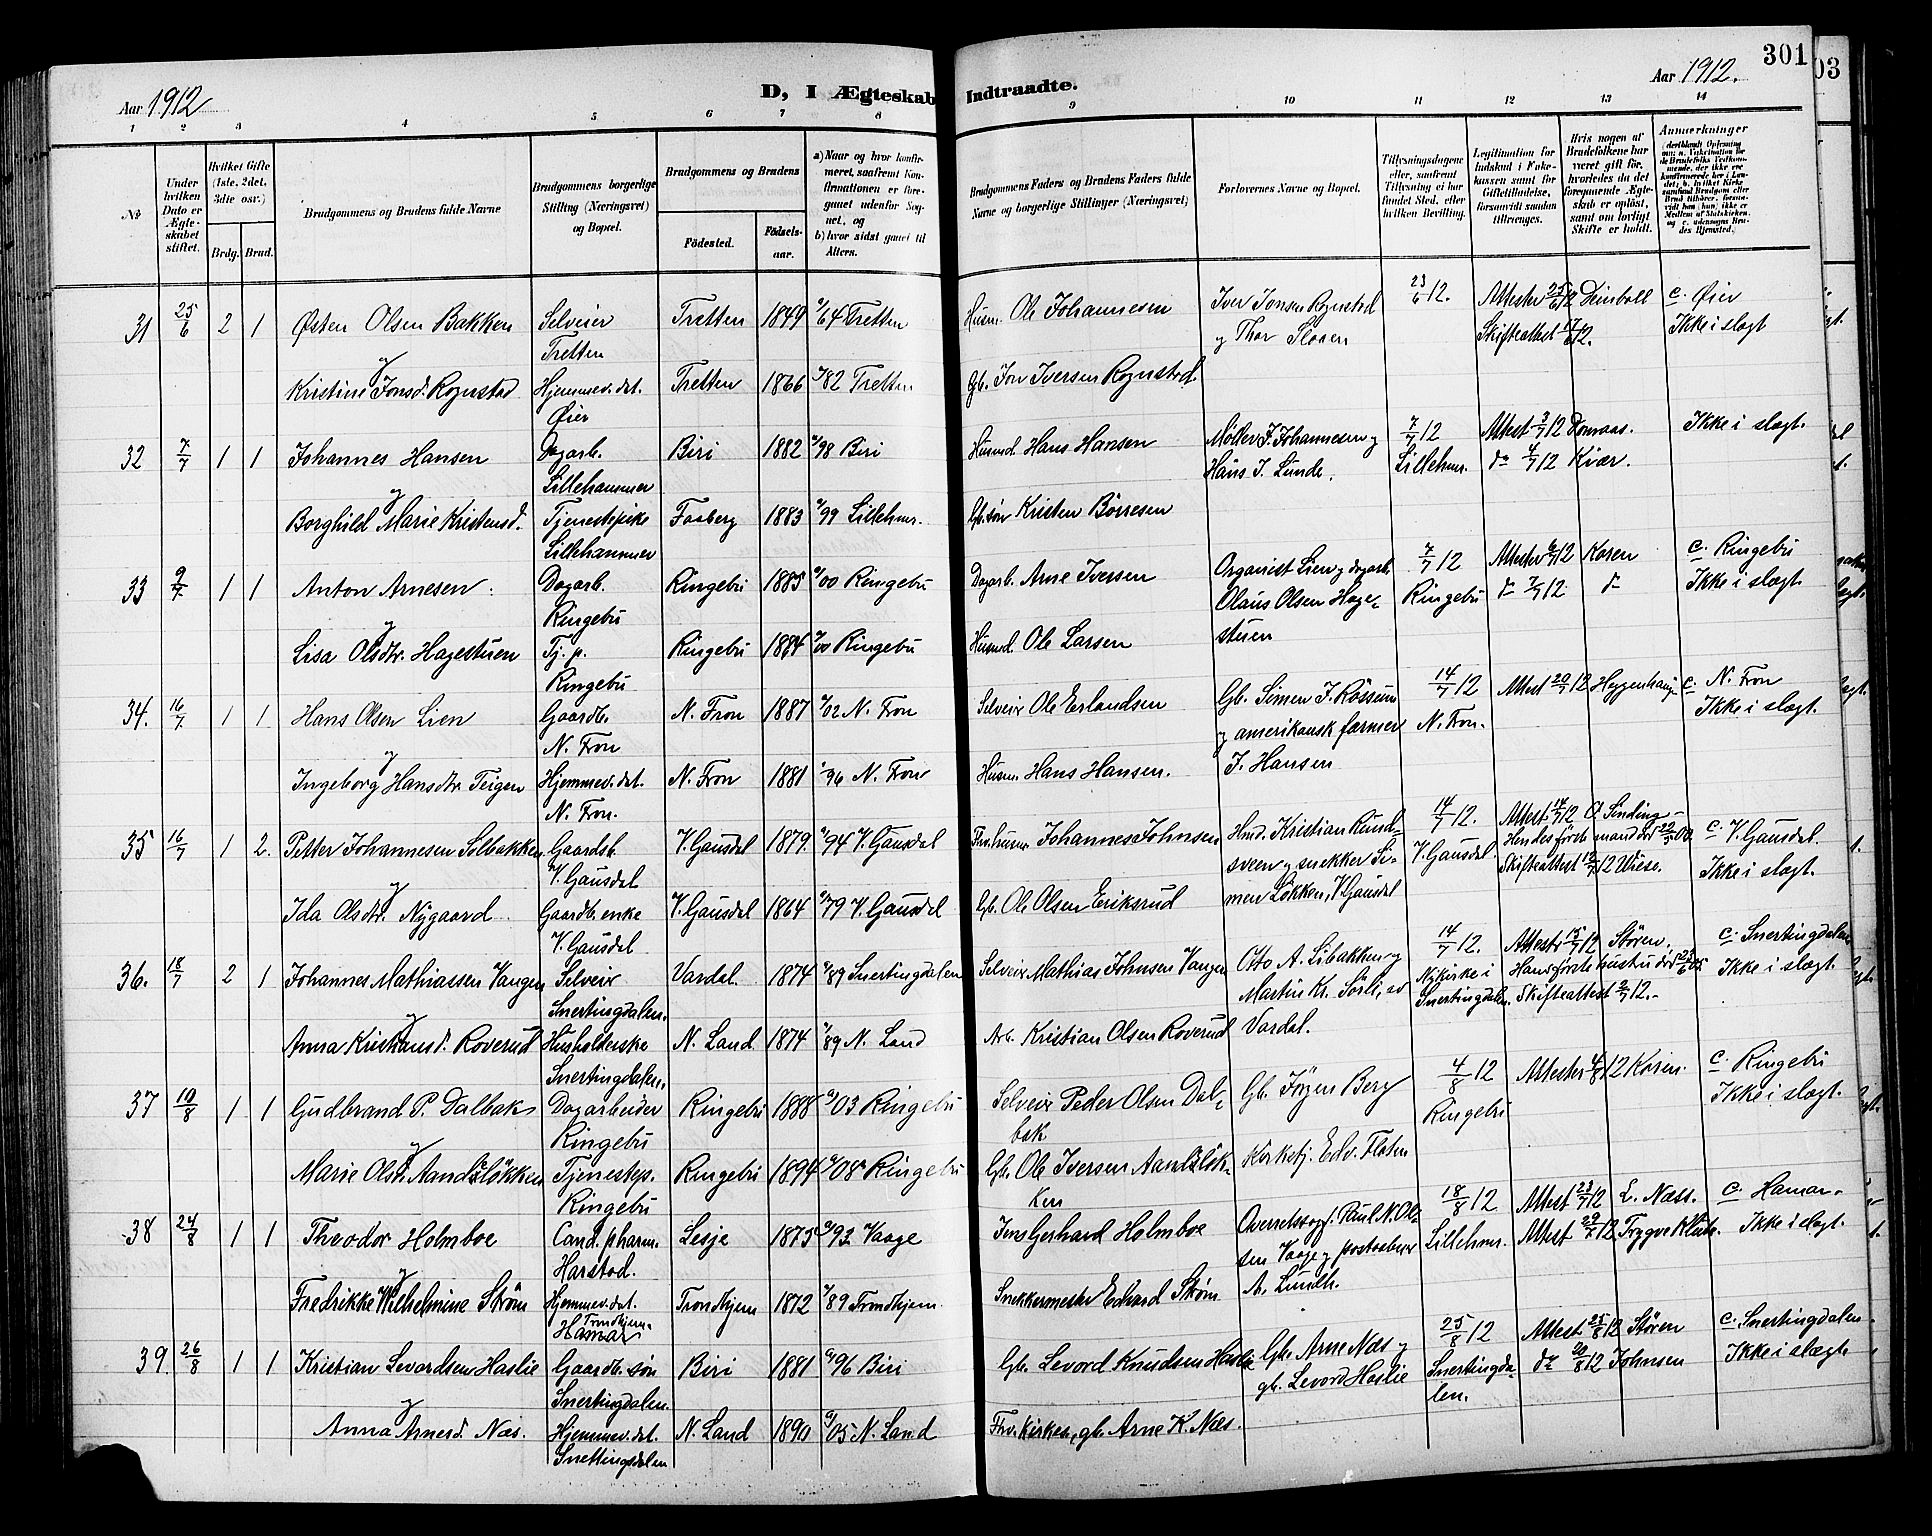 301
03
Aar 1912
D, I Ægteskab Indtraadte.
Aar 1912.
1 2 3 4 5 6 7 8 9 10 11 12 13 14
No
Under hvilken Dato er Ægteskabet stiftet.
Hvilket Gifte (1ste, 2det, 3die osv.)
Brdg. Brud.
Brudgommens og Brudens fulde Navne
Brudgommens borgerlige Stilling (Næringsvei) og Bopæl.
Brudgommens og Brudens
Fødested. Fødselsaar.
a) Naar og hvor konfirmeret, saafremt Konfirmationen er foregaaet udenfor Sognet, og
b) hvor sidst gaaet til Alters.
Brudgommens Faders og Brudens Faders fulde Navne og borgerlige Stillinger (Næringsvei)
Forlovernes Navne og Bopæl.
Tillysningsdagene eller, saafremt Tillysning ei har fundet Sted, efter hvilken Bevilling.
Legitimation for Indskud i Enkekassen samt for Giftetilladelse, forsaavidt saadan tiltrænges.
Hvis nogen af Brudefolkene har været gift før, hvorledes da det foregaaende Ægteskab er opløst, samt om lovligt Skifte er holdt.
Anmærkninger
31 25/6 2 1 Østen Olsen Bakken Selveier Tretten 1849 64 Tretten Husm. Ole Johannesen Iver Jonsen Rognstad 23/6 12. Attester 25/6 12 Deinboll c. Øier
Tretten og Thor Slaaen Skifteattest 12. Ikke i slægt
og
Kristine Jonsd. Rognstad Hjemmev. dat. Tretten 1866 82 Tretten Gb. Jon Iversen Rognstad.
Øier
32 7/7 1 1 Johannes Hansen Dagarb. Biri 1882 98 Biri Husmd. Hans Hansen Møller J. Johannesen og 7/7 12 Attest 3/7 12 Ikke i slægt.
Lillehammer Hans J. Lunde. Lillehmr. do 4/7 12 Kiær.
og
Borghild Marie Kristensd. Tjenestepike Faaberg 1883 99 Lillehmr. Gb. søn Kristen Börresen
Lillehammer
33 9/7 1 1 Anton Arnesen Dagarb. Ringebu 1885 00 Ringebu Dagarb. Arne Iversen Organist Lien og dagarb. 7/7 12 Attester 12 Koren c. Ringebu
Ringebu Olaus Olsen Hage- Ringebu do 7/7 12. do Ikke i slægt.
og stuen
Lisa Olsdtr. Hagestuen Tj. p. Ringebu 1884 00 Ringebu Husmd. Ole Larsen
Ringebu
34. 16/7 1 1 Hans Olsen Lien Gaardb. N. Fron 1887 02 N. Fron Selveier Ole Erlandsen Gb. Simen J. Rössum 14/7 12 Attest 20/7 12 Heggenhaug c. N. Fron
N. Fron og amerikansk farmer N. Fron. Ikke i slægt.
og J. Hansen
Ingeborg Hansdtr. Teigen Hjemmev. dat. N. Fron 1881 96 N. Fron Husm. Hans Hansen.
N. Fron.
35 16/7 1 2. Petter Johannesen Solbakken Gaardsb. V. Gausdal 1879. 94 V. Gausdal Fhv. husm. Johannes Johnsen Hmd. Kristian Rund- 14/7 12. Attest 14/7 12 O. Sinding c. V. Gausdal.
V. Gausdal sveen og snekker Si- V. Gausdal. Hendes förste mand död Ikke i slægt.
og men Lökken, V. Gausdal Skifteattest 12 Wiese.
Ida Olsdtr. Nygaard Gaardb. enke V. Gausdal 1864 79 V. Gausdal Gb. Ole Olsen Eriksrud
V. Gausdal
36. 18/7 2 1 Johannes Mathiassen Vangen Selveier Vardal. 1874 89 Snertingdalen Selveier Mathias Johnsen Vangen Otto A. Libakken og 14/7 12. Attester 15/7 12 Stören. c. Snertingdalen
Snertingdalen. Martin Kr. Sörli, av Nykirke i Hans förste hustru död Ikke i slægt.
og Vardal. Snertingdalen. Skifteattest 12.
Anna Kristiansd. Roverud Husholderske N. Land 1874 89 N. Land Arb. Kristian Olsen Roverud
Snertingdalen.
37 10/8 1 1 Gudbrand P. Dalbak Dagarbeider Ringebu 1888 03 Ringebu Selveier Peder Olsen Dal- Gb. Jörgen Berg 4/8 12 Attester 4/8 12 Koren. c. Ringebu
Ringebu bak Ringebu Ikke i slægt.
og
Marie Olsdtr. Aandslökken Tjenestep. Ringebu 1894 08 Ringebu Gb. Ole Iversen Aandslök- Kirketj. Edv. Flaten
Ringebu ken
38 24/8 1 1 Theodor Holmboe Cand. pharm. Lesje 1875 92 Vaage Jens Gerhard Holmboe Overretssagf. Paul N. Ol- 18/8 12 Attest 23/7 12 L. Næss. c. Hamar.
Harstad. sen Vaage og postaabner Lillehmr. Attest 12 Trygve Ikke i slægt.
og A. Lundh.
Fredrikke Wilhelmine Ström Hjemmev. dat. Trondhjem 1872 89 Trondhjem Snekkermester Edvard Ström
Trondhjem
Hamar
39. 26/8 1 1 Kristian Levardsen Haslie Gaardb. søn Biri 1881 96 Biri Gb. Levord Knudsen Haslie Gb. Arne Næs og 25/8 12 Attest 25/8 12 Stören c. Snertingdalen.
Snertingdalen. gb. Levord Haslie Snertingda- do 20/8 12 Johnsen Ikke i slægt.
og len.
Anna Arnesd. Næs. Hjemmev. dat. N. Land 1890 05 N. Land Fhv. Kirkes., gb. Arne K. Næs.
Snertingsdalen